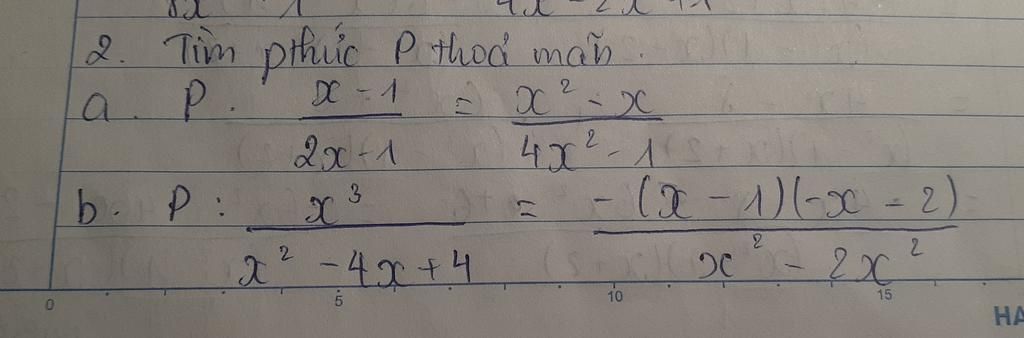 2. Tìm pthức P thoả mãn.
a. P . (x - 1)/(2x - 1) = (x² - x)/(4x² - 1)
b. P : x³/(x² - 4x + 4) = -(x - 1)(-x - 2)/(x² - 2x²)
0 5 10 15
HA